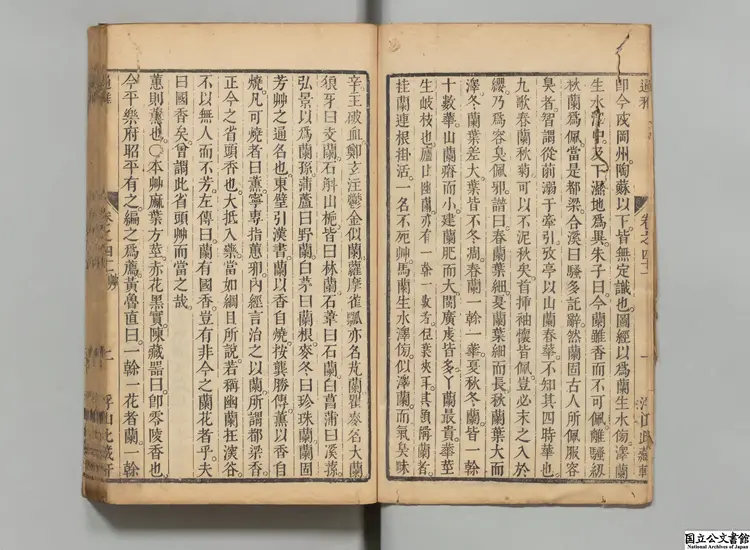 通雅
卽今或岡州陶蘇以下皆無定識也圖經以爲蘭生水傍澤蘭
生水澤中及下濕地爲異朱子曰今蘭雖香而不可佩離騷紉
秋蘭爲佩當是都梁合溪曰騷多託辭然蘭固古人所佩服容
臭者智謂從前溺于牽引攷亭以山蘭春華不知其四時華也
九歌春蘭秋菊可以不泥秋矣首揷袖懷皆佩豈必末之入於
纓乃爲容臭佩邪譜曰春蘭葉細夏蘭葉細而長秋蘭葉大而
澤冬蘭葉差大葉皆不冬凋春蘭一榦一華夏秋冬蘭皆一榦
十數華山蘭瘠而小建蘭肥而大閩廣皆多丫蘭最貴華莖
生岐枝也廬山幽蘭亦有一榦一數者但葉夾耳其類稱蘭者
挂蘭連根掛活一名不死艸馬蘭生水澤傍似澤蘭而氣臭味
卷之四十二
一
浮山此藏軒
辛王破血鄭玄注鬱金似蘭蘿摩雀瓢亦名芄蘭瞿麥名大蘭
須牙曰支蘭石斛山梔皆曰林蘭石韋曰石蘭白菖蒲曰溪蓀
弘景以爲蘭孫蒲蘆曰野蘭白茅曰蘭根麥冬曰珍珠蘭蘭固
芳艸之通名也東壁引漢書蘭以香自燒按龔勝傳薰以香自
燒凡可燒者曰薰寧專指蕙邪內經言治之以蘭所謂都梁香
正今之省頭香也大抵入藥當如綱目所說若稱幽蘭在深谷
不以無人而不芳左傳曰蘭有國香豈有非今之蘭花者乎夫
曰國香矣曾謂此省頭艸而當之哉
蕙則薰也○本艸麻葉方莖赤花黑實陳藏器曰卽零陵香也
今平樂府昭平有之編之爲薦黃魯直曰一榦一花者蘭一榦
通雅
卷之四十二
二
浮山此藏軒
国立公文書館
National Archives of Japan